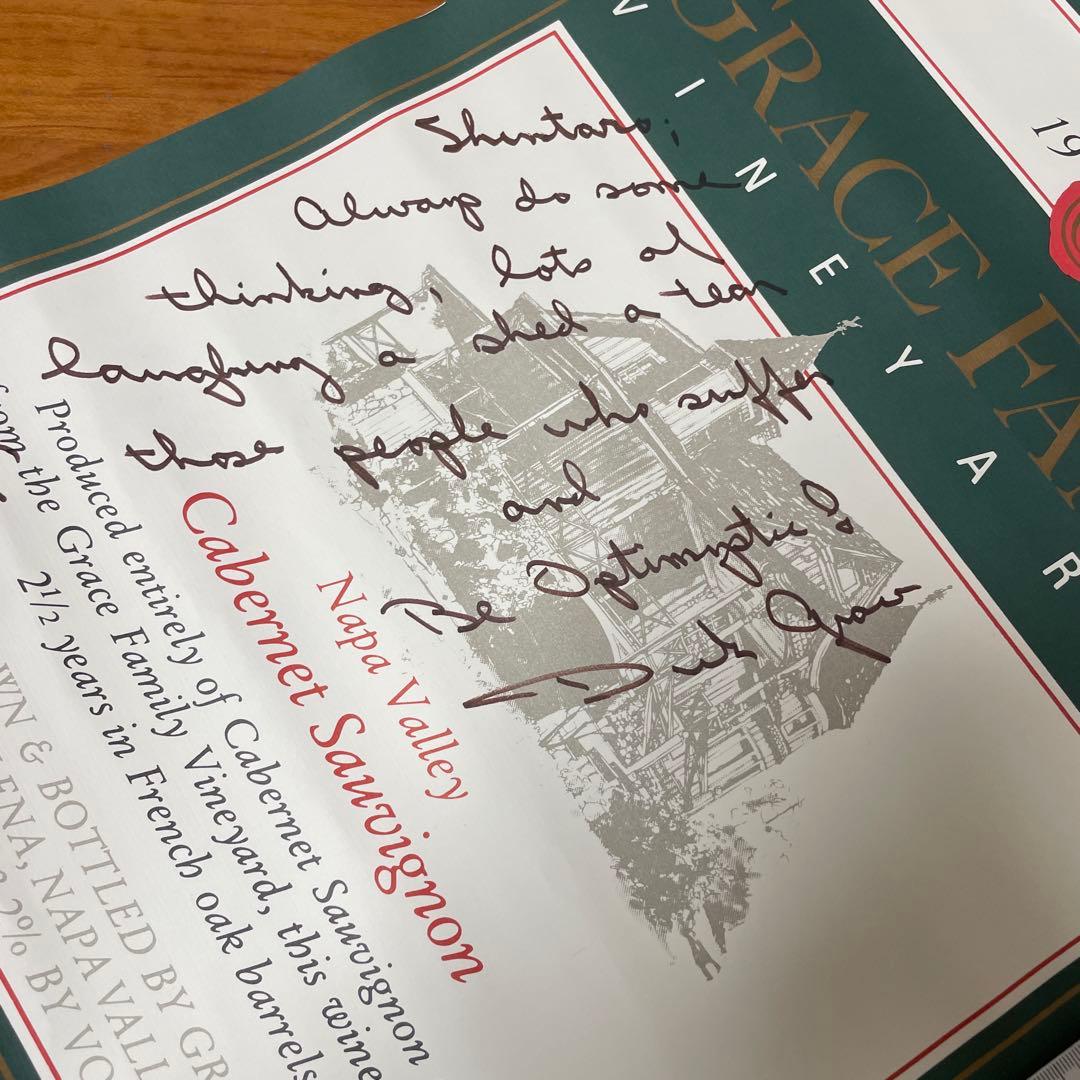 Shintaro;
Always do some
thinking, lots of
laughing & shed a tear
those people who suffer
and
Be Optimystic!
Dick Grace
GRACE FA
VINEYAR
19
Napa Valley
Cabernet Sauvignon
Produced entirely of Cabernet Sauvignon
from the Grace Family Vineyard, this wine
2½ years in French oak barrels
WN & BOTTLED BY GR
LENA, NAPA VALL
2% BY VO